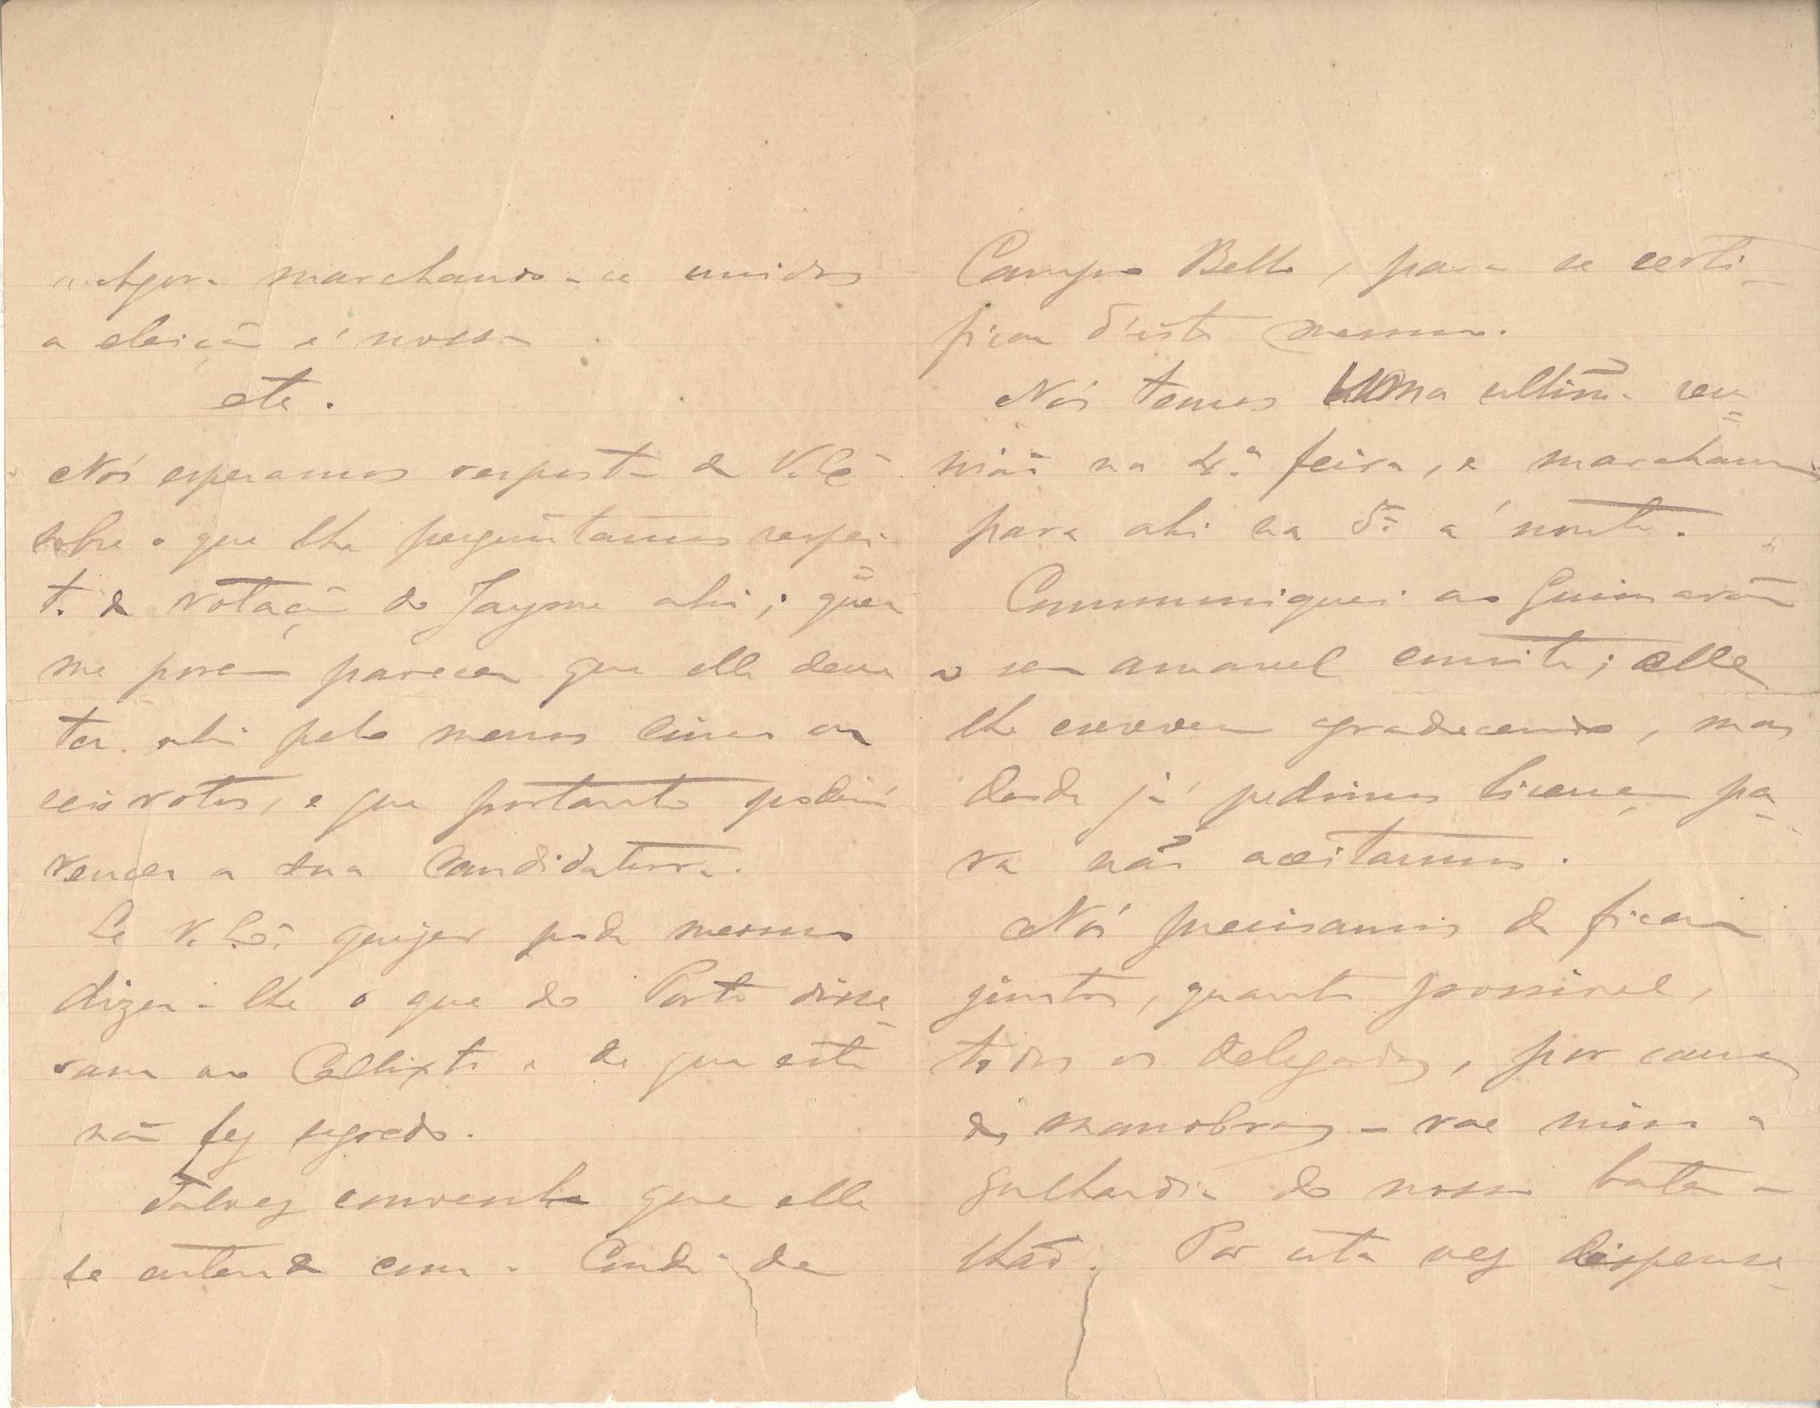 Agora marchando-se unidos
a eleição é nossa
etc.
Nós esperamos resposta de V. Cê
sobre o que lhe perguntamos respei-
to de votação do Jayme ahi; quer
me porem parecer que elle deve
ter ahi pelo menos cinco ou
seis votos, e que portanto poderá
vencer a sua candidatura.
Se V. Cê quizer pode mesmo
dizer-lhe o que do Porto disse-
ram ao Callixto e de que este
não fez segredo.
Talvez convenha que elle
se entenda com o Conde de
Campo Bello, para se certi-
ficar d'isto mesmo.
Nós temos uma ultima reu-
nião na 4.ª feira, e marchamos
para ahi na 5.ª á noute.
Communiquei ao Guimarães
o seu amavel convite; elle
lhe escreverá agradecendo, mas
desde já pedimos licença pa-
ra não aceitarmos.
Nós precisamos de ficar
juntos, quanto possivel,
todos os delegados, por causa
das manobras - vae nisso a
galhardia do nosso bata-
lhão. Por esta vez dispense-